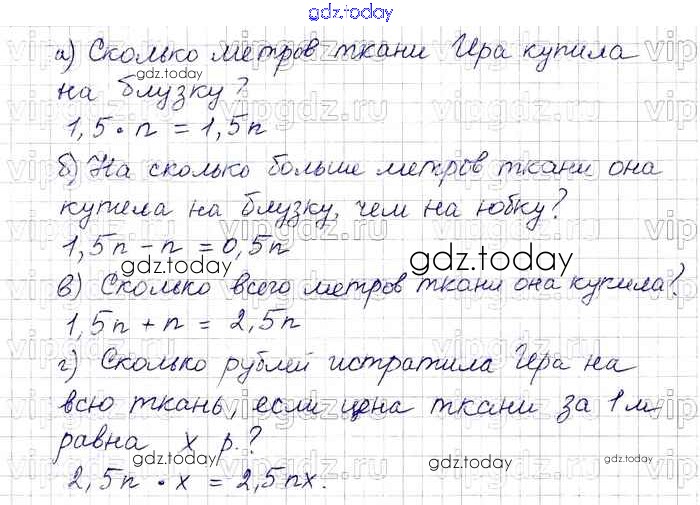 gdz.today
а) Сколько метров ткани Ира купила
gdz.today
на блузку?
1,5 · n = 1,5n
б) На сколько больше метров ткани она
купила на блузку, чем на юбку?
1,5n - n = 0,5n
gdz.today gdz.today
в) Сколько всего метров ткани она купила?
1,5n + n = 2,5n
г) Сколько рублей истратила Ира на
всю ткань, если цена ткани за 1 м
равна x р.?
gdz.today gdz.today
2,5n · x = 2,5nx.
vipgdz.ru